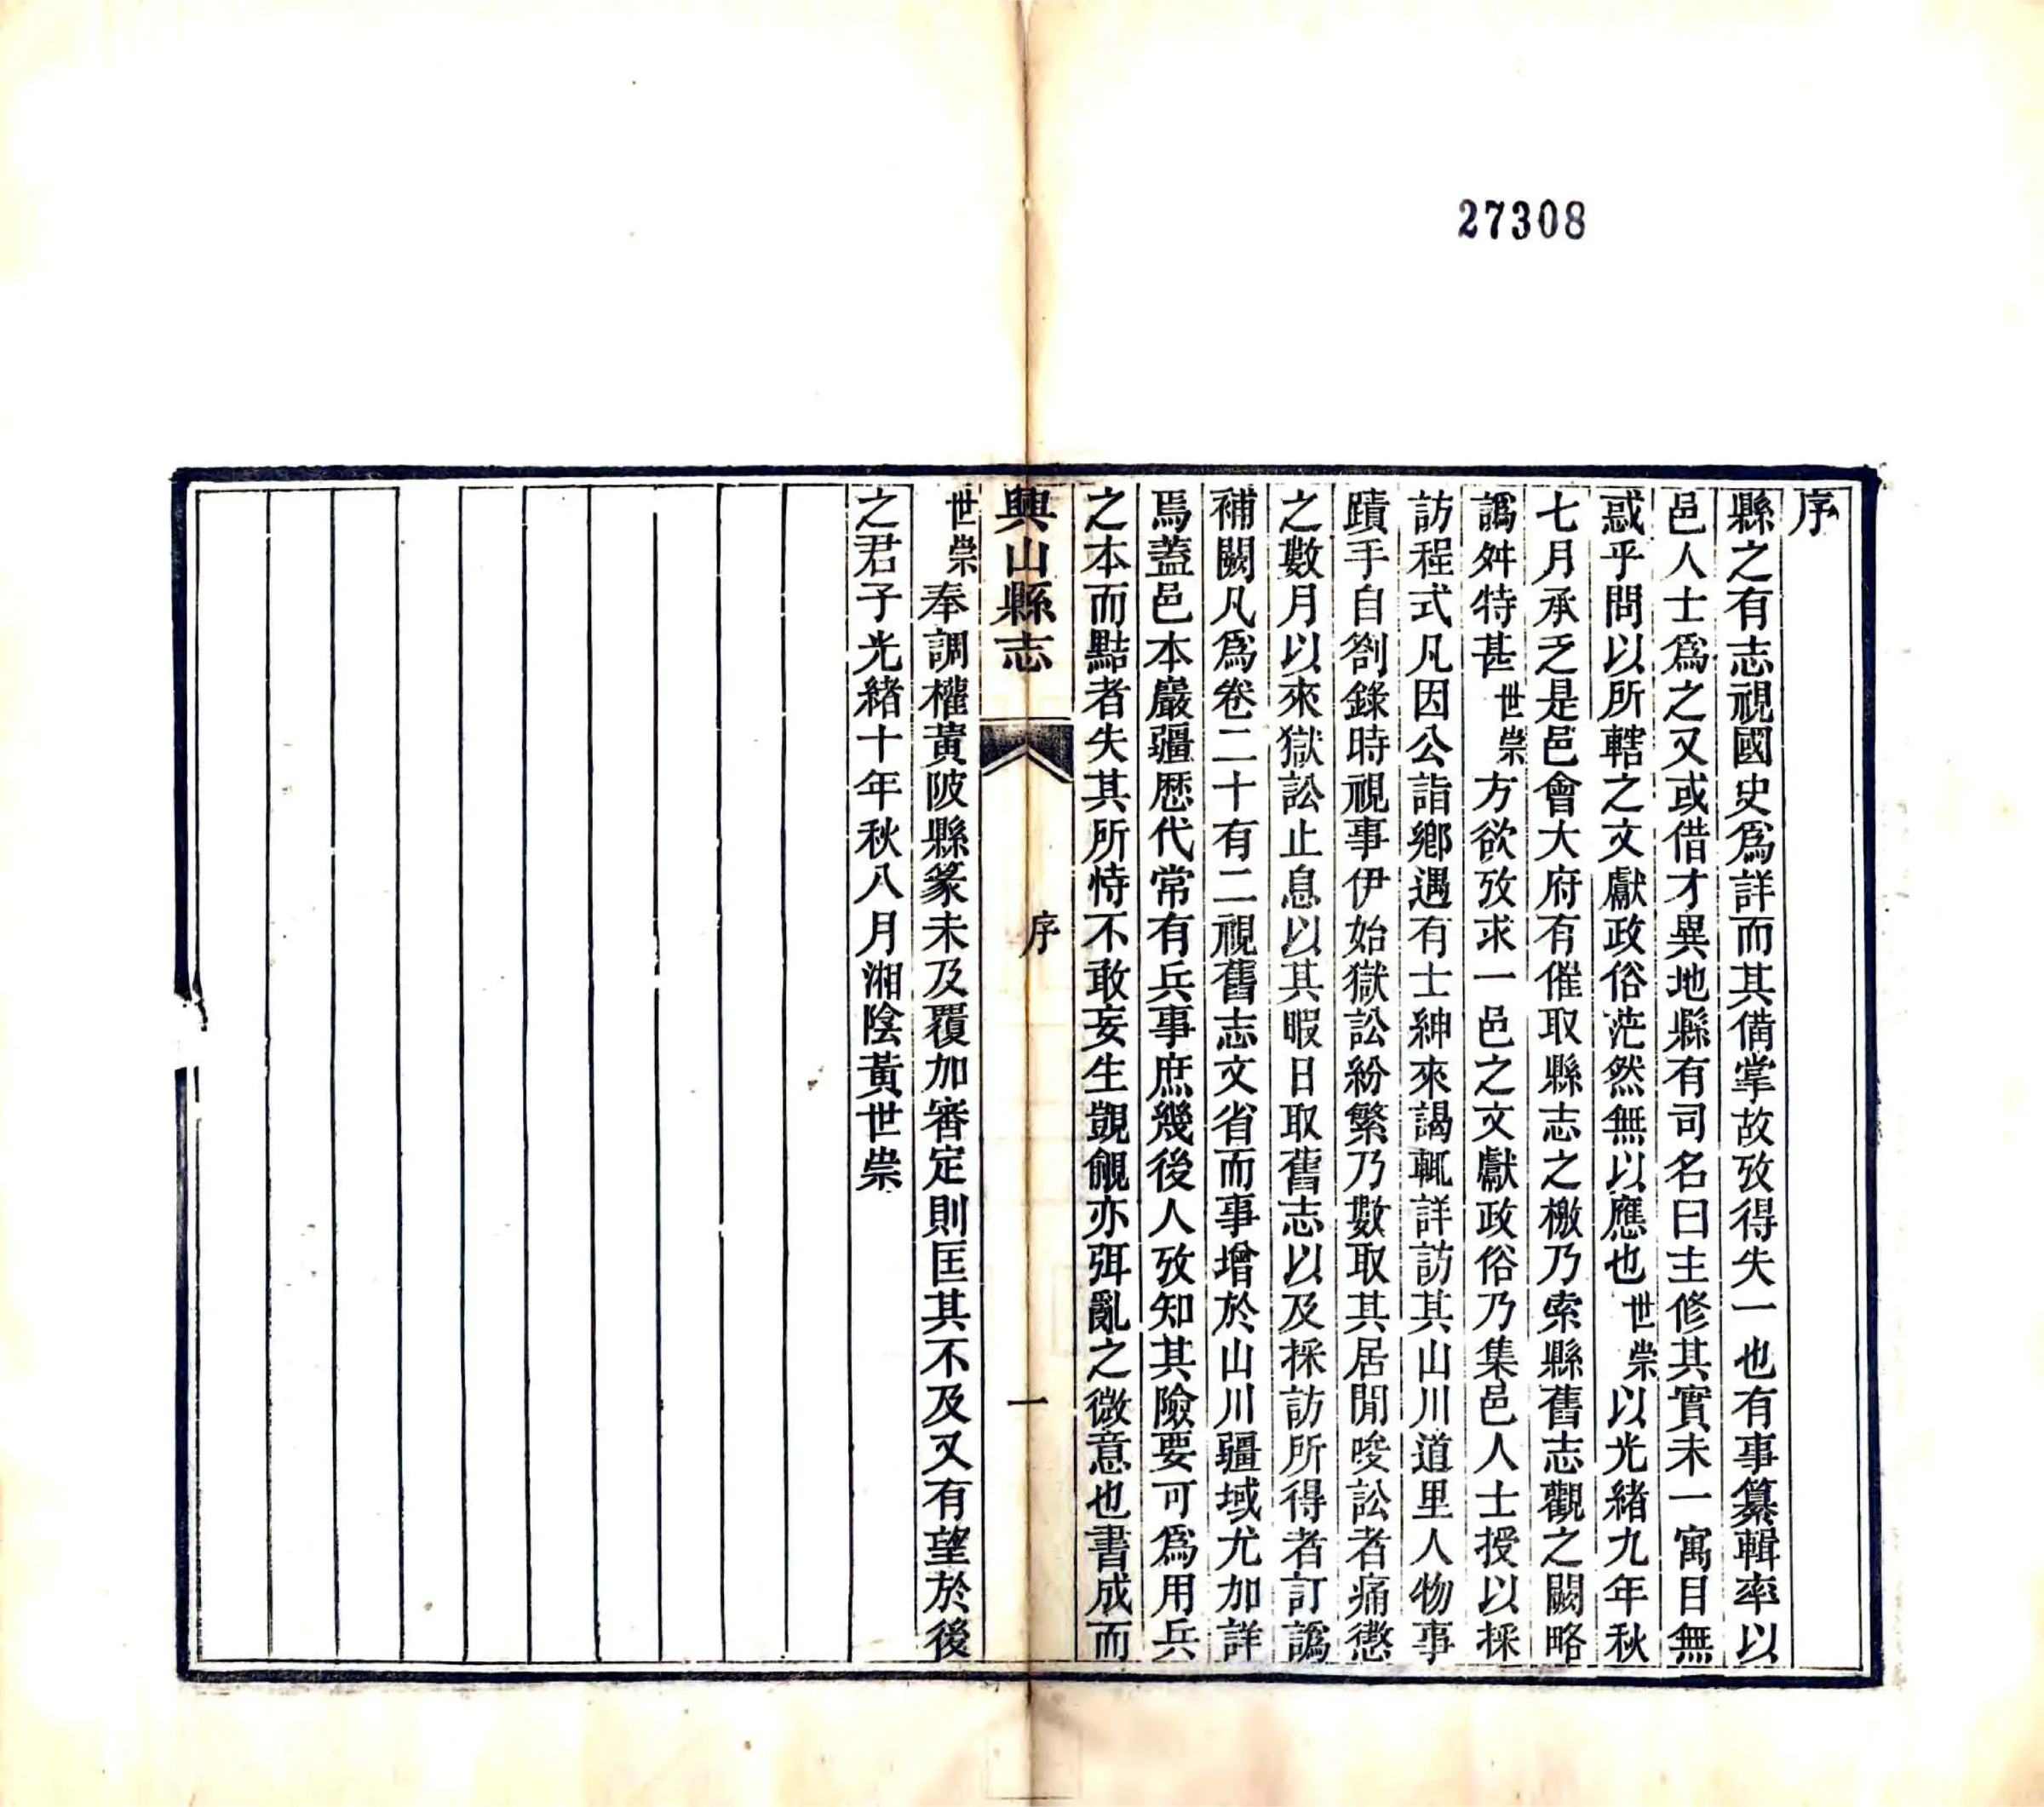 27308
序
縣之有志視國史爲詳而其備掌故攷得失一也有事纂輯率以
邑人士爲之又或借才異地縣有司名曰主修其實未一寓目無
惑乎問以所轄之文獻政俗茫然無以應也世崇以光緒九年秋
七月承乏是邑會大府有催取縣志之檄乃索縣舊志觀之闕略
譌舛特甚世崇方欲攷求一邑之文獻政俗乃集邑人士授以採
訪程式凡因公詣鄉遇有士紳來謁輒詳訪其山川道里人物事
蹟手自劄錄時視事伊始獄訟紛繁乃數取其居閒唆訟者痛懲
之數月以來獄訟止息以其暇日取舊志以及採訪所得者訂譌
補闕凡爲卷二十有二視舊志文省而事增於山川疆域尤加詳
焉蓋邑本巖疆歷代常有兵事庶幾後人攷知其險要可爲用兵
之本而黠者失其所恃不敢妄生覬覦亦弭亂之微意也書成而
興山縣志
序
一
世崇奉調權黃陂縣篆未及覆加審定則匡其不及又有望於後
之君子光緒十年秋八月湘陰黃世崇